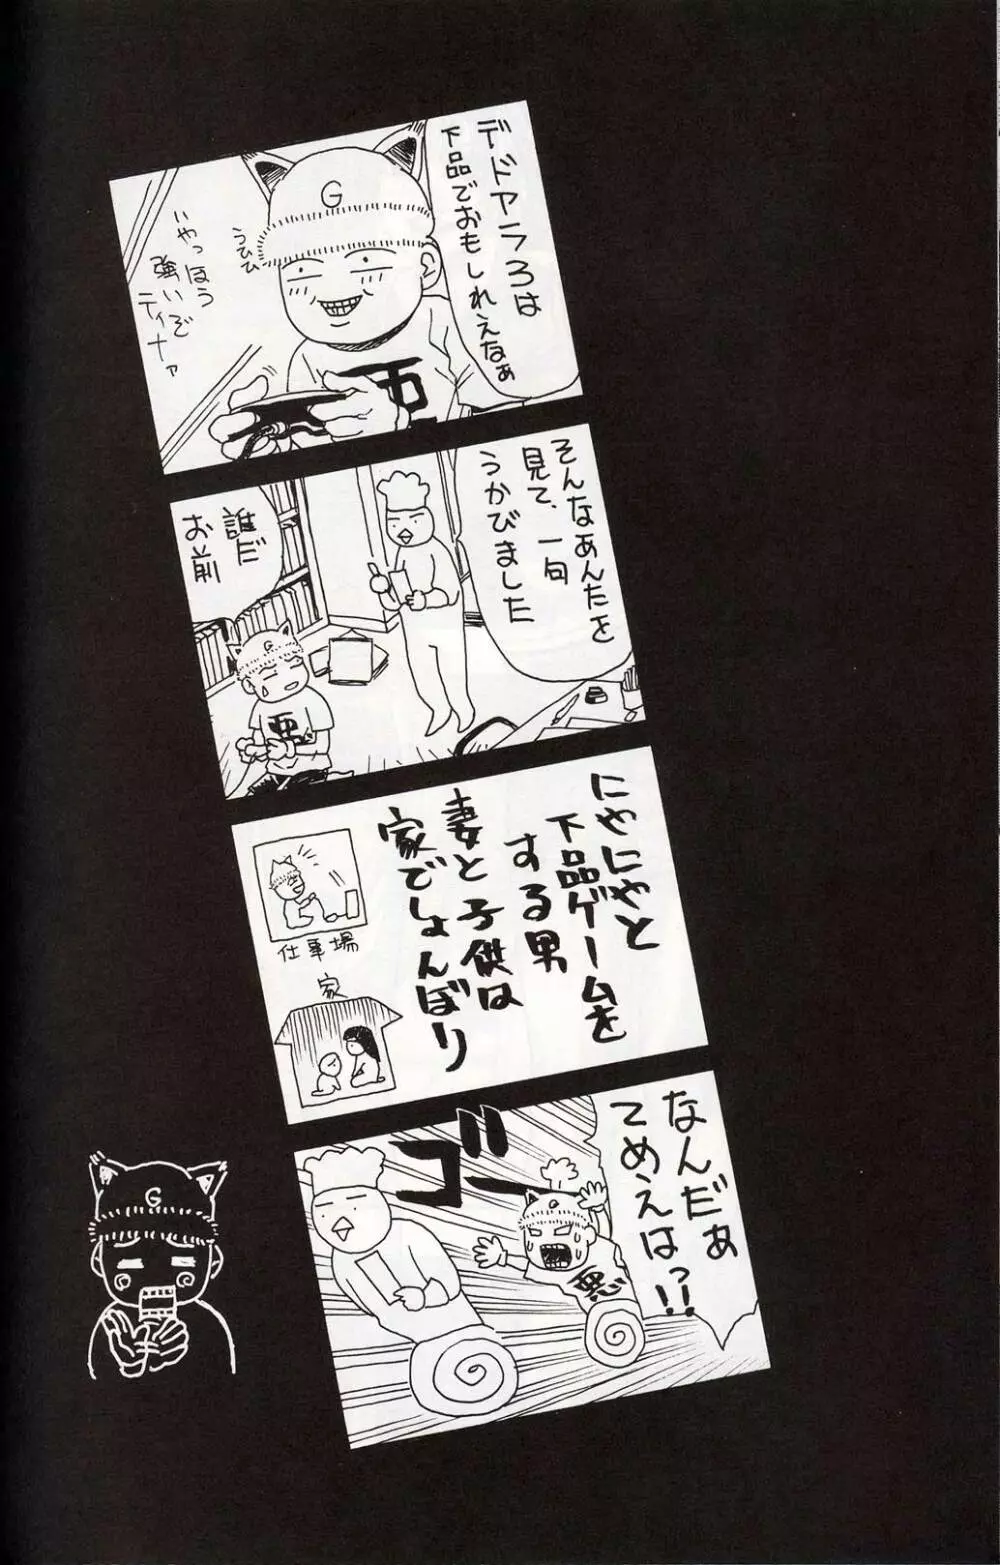 デドアラ3は
下品でおもしれえなぁ
うひひ
やっほう
強いぞ
ティナァ
G
悪
そんなあんたを
見て、一句
うかびました
誰だ
お前
G
悪
にやにやと
下品ゲームを
する男
妻と子供は
家でしょんぼり
仕事場
家
なんだぁ
てめえはっ!!
ゴー
G
悪
G